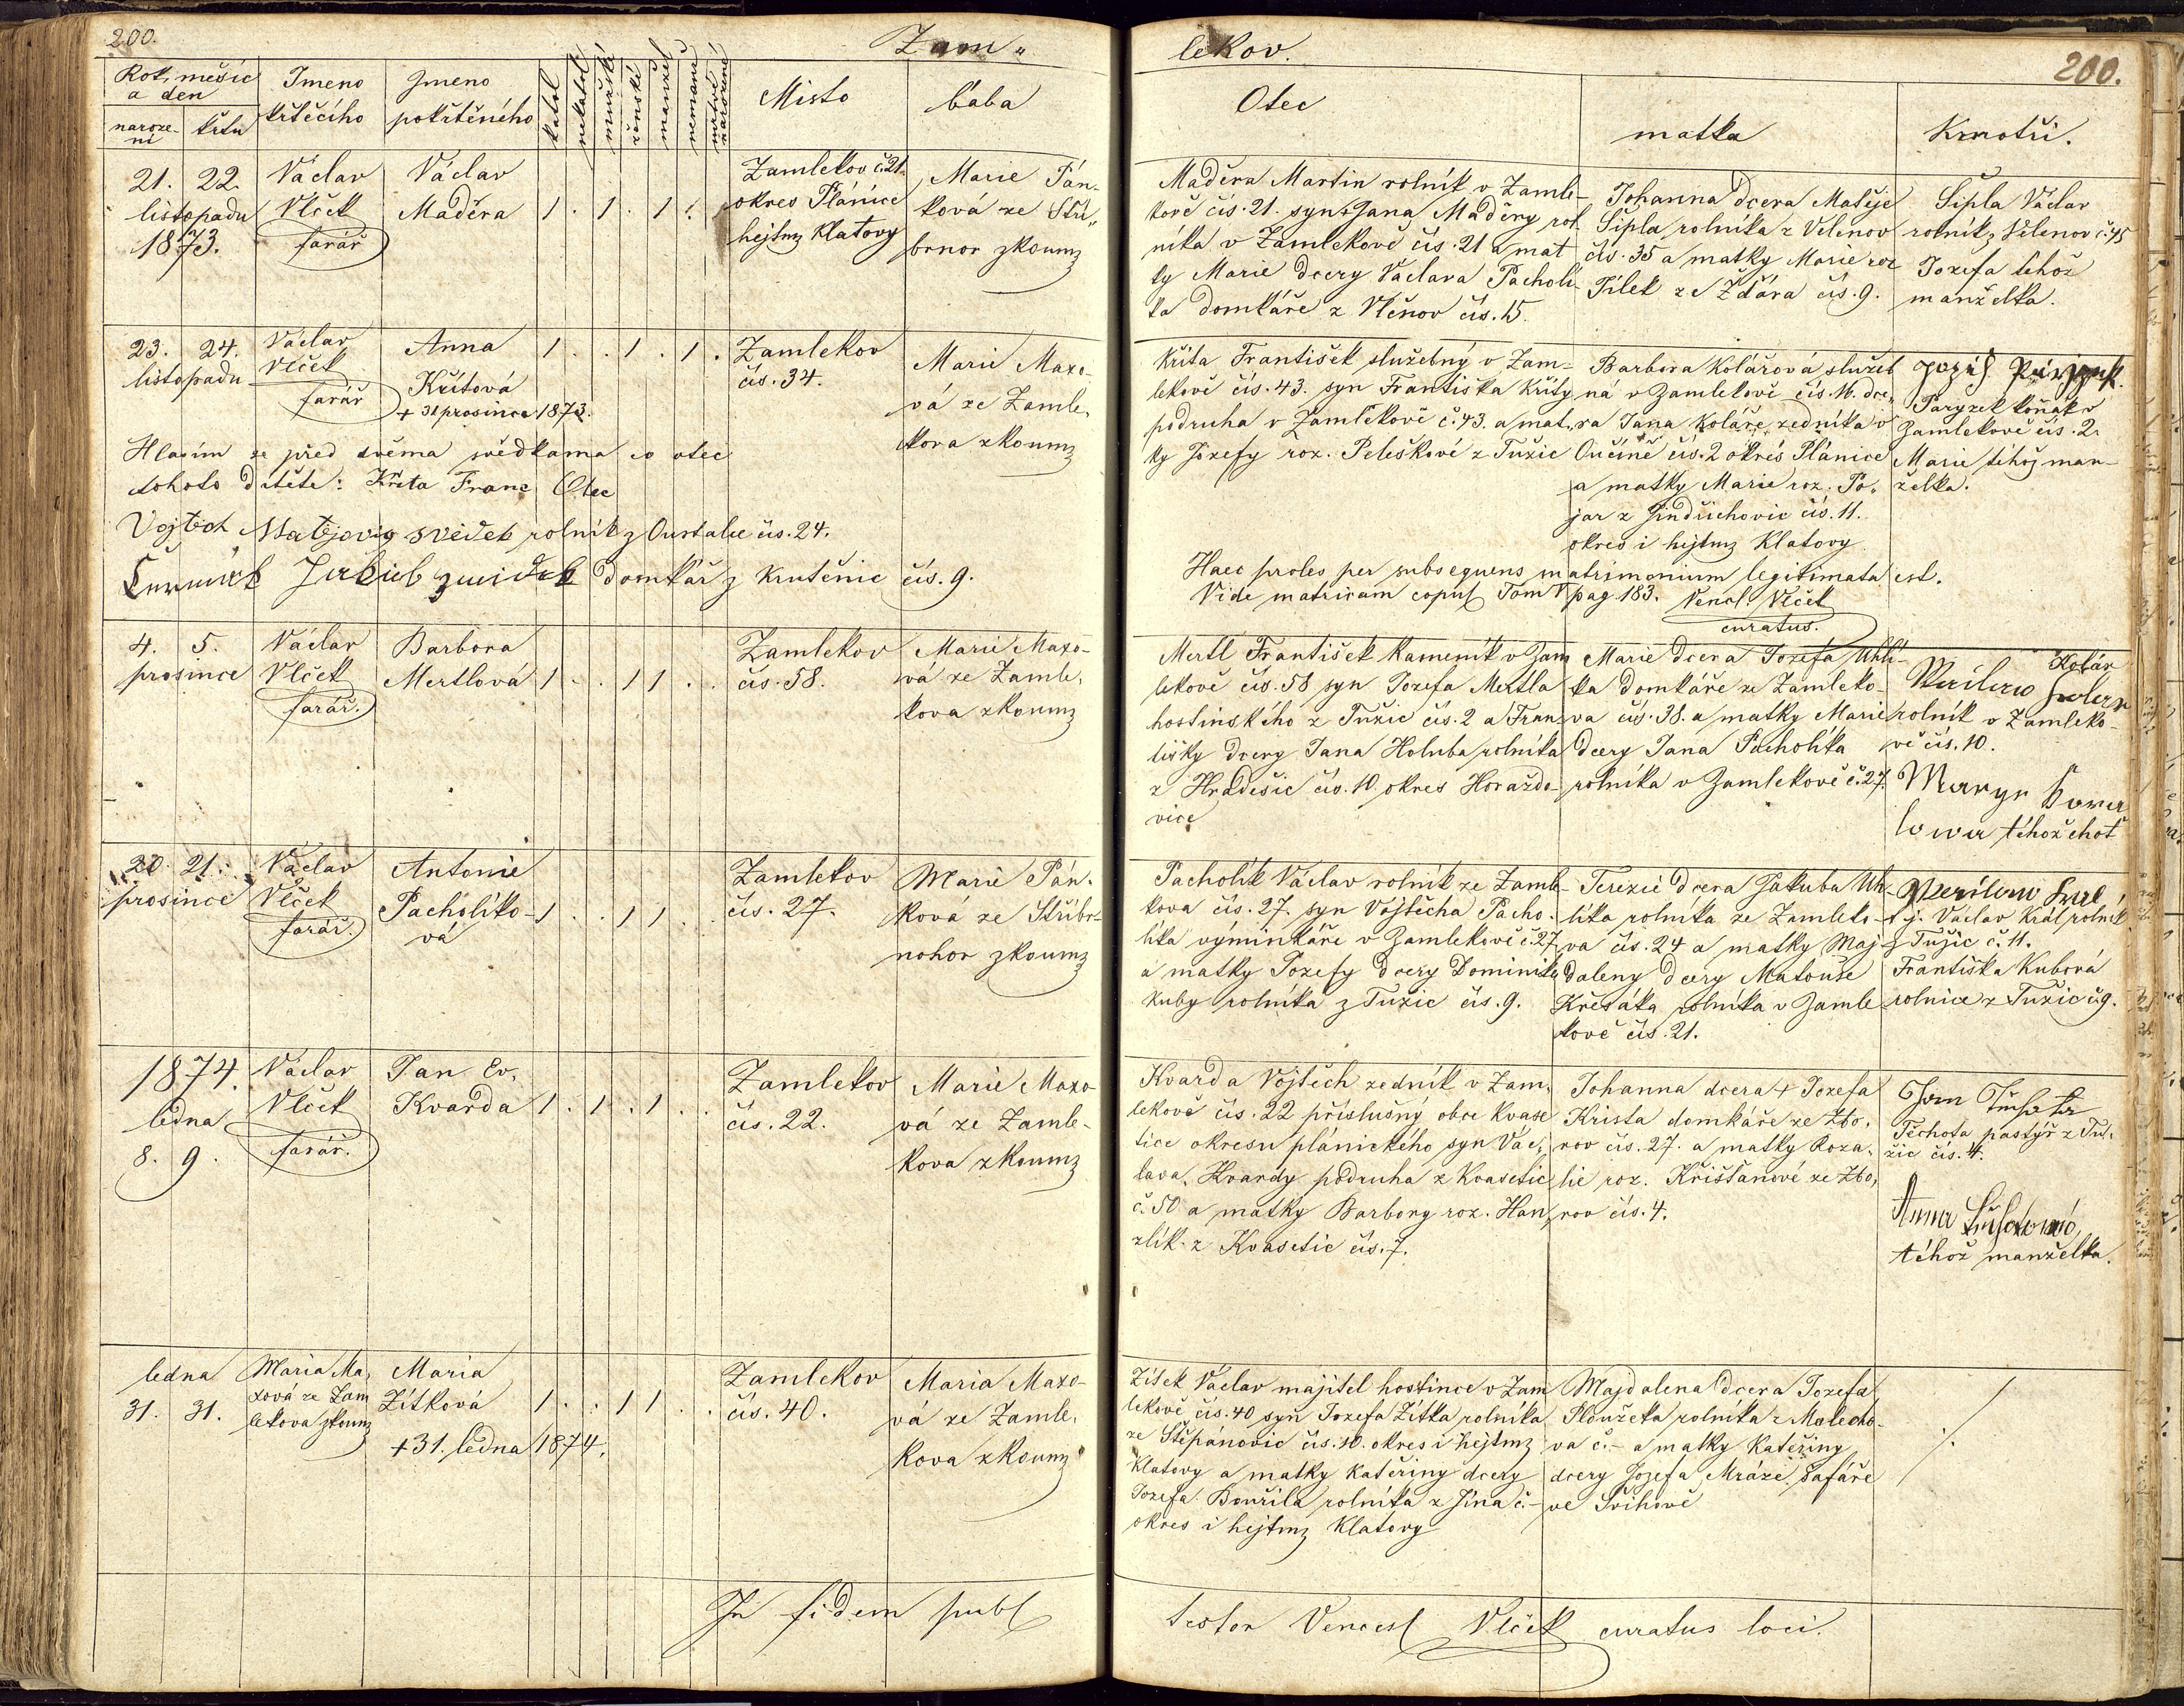 200.
Zam„
lekov.
200.
Rok, měsíc
a den
naroze-
ní
křtu
Jmeno
křtěcího
Jmeno
pokřtěného
katol
nekatol
mužské
ženské
manžel
nemanž
mrtvě
narozené
Místo
baba
Otec
matka
Kmotři.
21. 22.
listopadu
1873.
Václav
Vlček
farář
Václav
Maděra
1 . 1 . 1 .
Zamlekov č. 21.
okres Plánice
hejtmz Klatovy
Marie Pán-
ková ze Stří„
brnor zkoumz
Maděra Martin rolník v Zamle-
kově čís. 21. syn Jana Maděry rol
níka v Zamlekově čís. 21 a mat
ky Marie dcery Václava Pacholí-
ka domkáře z Vlčnov čís. 15.
Johanna dcera Matěje
Šípla rolníka z Velenov
čís. 35 a matky Marie roz
Pílek ze Ždára čís. 9.
Šípla Václav
rolník z Velenov č. 45
Jozefa téhož
manželka.
23. 24.
listopadu
Václav
Vlček
farář
Anna
Křítová
+ 31 prosince 1873.
1 . . 1 . 1 .
Zamlekov
čís. 34.
Marie Maxo-
vá ze Zamle,
kova zkoumz
Hlásím se před dvěma svědkama co otec
tohoto dítěte: Kříta Franc Otec
Vojtěch Matějovig svědek rolník z Oustalee čís. 24.
Jakub zwidek domkář z Krutěnic čís. 9.
Kříta František služebný v Zam-
lekově čís. 43. syn Františka Kříty
podruha v Zamlekově č. 43. a mat„
ky Jozefy roz. Peleškové z Tužic
Barbora Kolářová služeb
ná v Zamlekově čís. 16. dce„
ra Jana Koláře zedníka v
Oučíně čís. 2 okres Plánice
a matky Marie roz. Po„
jar z Jindřichovic čís. 11.
okres i hejtmz Klatovy
Paryzek koňák v
Zamlekově čís. 2.
Marie téhož man-
želka.
Haec proles per subsequens matrimonium legitimata est.
Vide matricam copul Tom V pag. 183. Vencl: Vlček
curatus.
4. 5.
prosince
Václav
Vlček
farář.
Barbora
Mertlová
1 . . 1 1 . .
Zamlekov
čís. 58.
Marie Maxo-
vá ze Zamle,
kova zkoumz
Mertl František Kameník v Zam
lekově čís. 58 syn Jozefa Mertla
hostinského z Tužic čís. 2 a Fran-
tišky dcery Jana Holuba rolníka
z Hradešic čís. 10. okres Horaždo-
vice
Marie dcera Jozefa Uhlí-
ka domkáře ze Zamleko-
va čís. 38. a matky Marie
dcery Jana Pacholíka
rolníka v Zamlekově č. 27.
Kolár
rolník v Zamleko-
vě čís. 10.
téhož choť
20. 21.
prosince
Václav
Vlček
farář.
Antonie
Pacholíko-
vá
1 . . 1 1 .
Zamlekov
čís. 27.
Marie Pán-
ková ze Stříbr-
nohor zkoumz
Pacholík Václav rolník ze Zamle-
kova čís. 27. syn Vojtěcha Pacho-
líka výminkáře v Zamlekově č. 27
a matky Jozefy dcery Dominika
Kuby rolníka z Tužic čís. 9.
Terezie dcera Jakuba Uh-
líka rolníka ze Zamleko-
va čís. 24 a matky Maj-
daleny dcery Matouše
Křesáka rolníka v Zamle-
kově čís. 21.
t. j. Václav Král rolník
z Tužic č. 11.
Františka Kubová
rolnice z Tužic č. 9.
1874.
ledna
8. 9.
Václav
Vlček
farář.
Jan Ev.
Kvarda
1 . 1 . 1 . .
Zamlekov
čís. 22.
Marie Maxo
vá ze Zamle-
kova zkoumz
Kvarda Vojtěch zedník v Zam,
lekově čís. 22 příslušný obce Kvase
tice okresu plánického syn Vác,
lava, Kvardy podruha z Kvasetic
č. 50 a matky Barbory roz. Han,
zlík z Kvasetic čís. 7.
Johanna dcera + Jozefa
Krista domkáře ze Zbo,
rov čís. 27. a matky Roza,
lie roz. Křišťanové ze Zbo,
rov čís. 4.
Těchota pastýř z Tu,
žic čís. 4.
Anna
téhož manželka.
ledna
31. 31.
Maria Ma,
xová ze Zam
lekova zkoumz
Maria
Žítková
+ 31. ledna 1874.
1 . . 1 1 . .
Zamlekov
čís. 40.
Maria Maxo-
vá ze Zamle,
kova zkoumz
Žítek Václav majitel hostince v Zam
lekově čís. 40 syn Jozefa Žítka rolníka
ze Štěpánovic čís. 10. okres i hejtmz
Klatovy a matky Kateřiny dcery
Jozefa Bouřila rolníka z Jína č. -
okres i hejtmz Klatovy
Majdalena dcera Jozefa
Ploužeka rolníka z Malecho-
va č. - a matky Kateřiny
dcery Jozefa Mráze šafáře
ve Švihově
In fidem publ
testor Vencesl Vlček curatus loci.